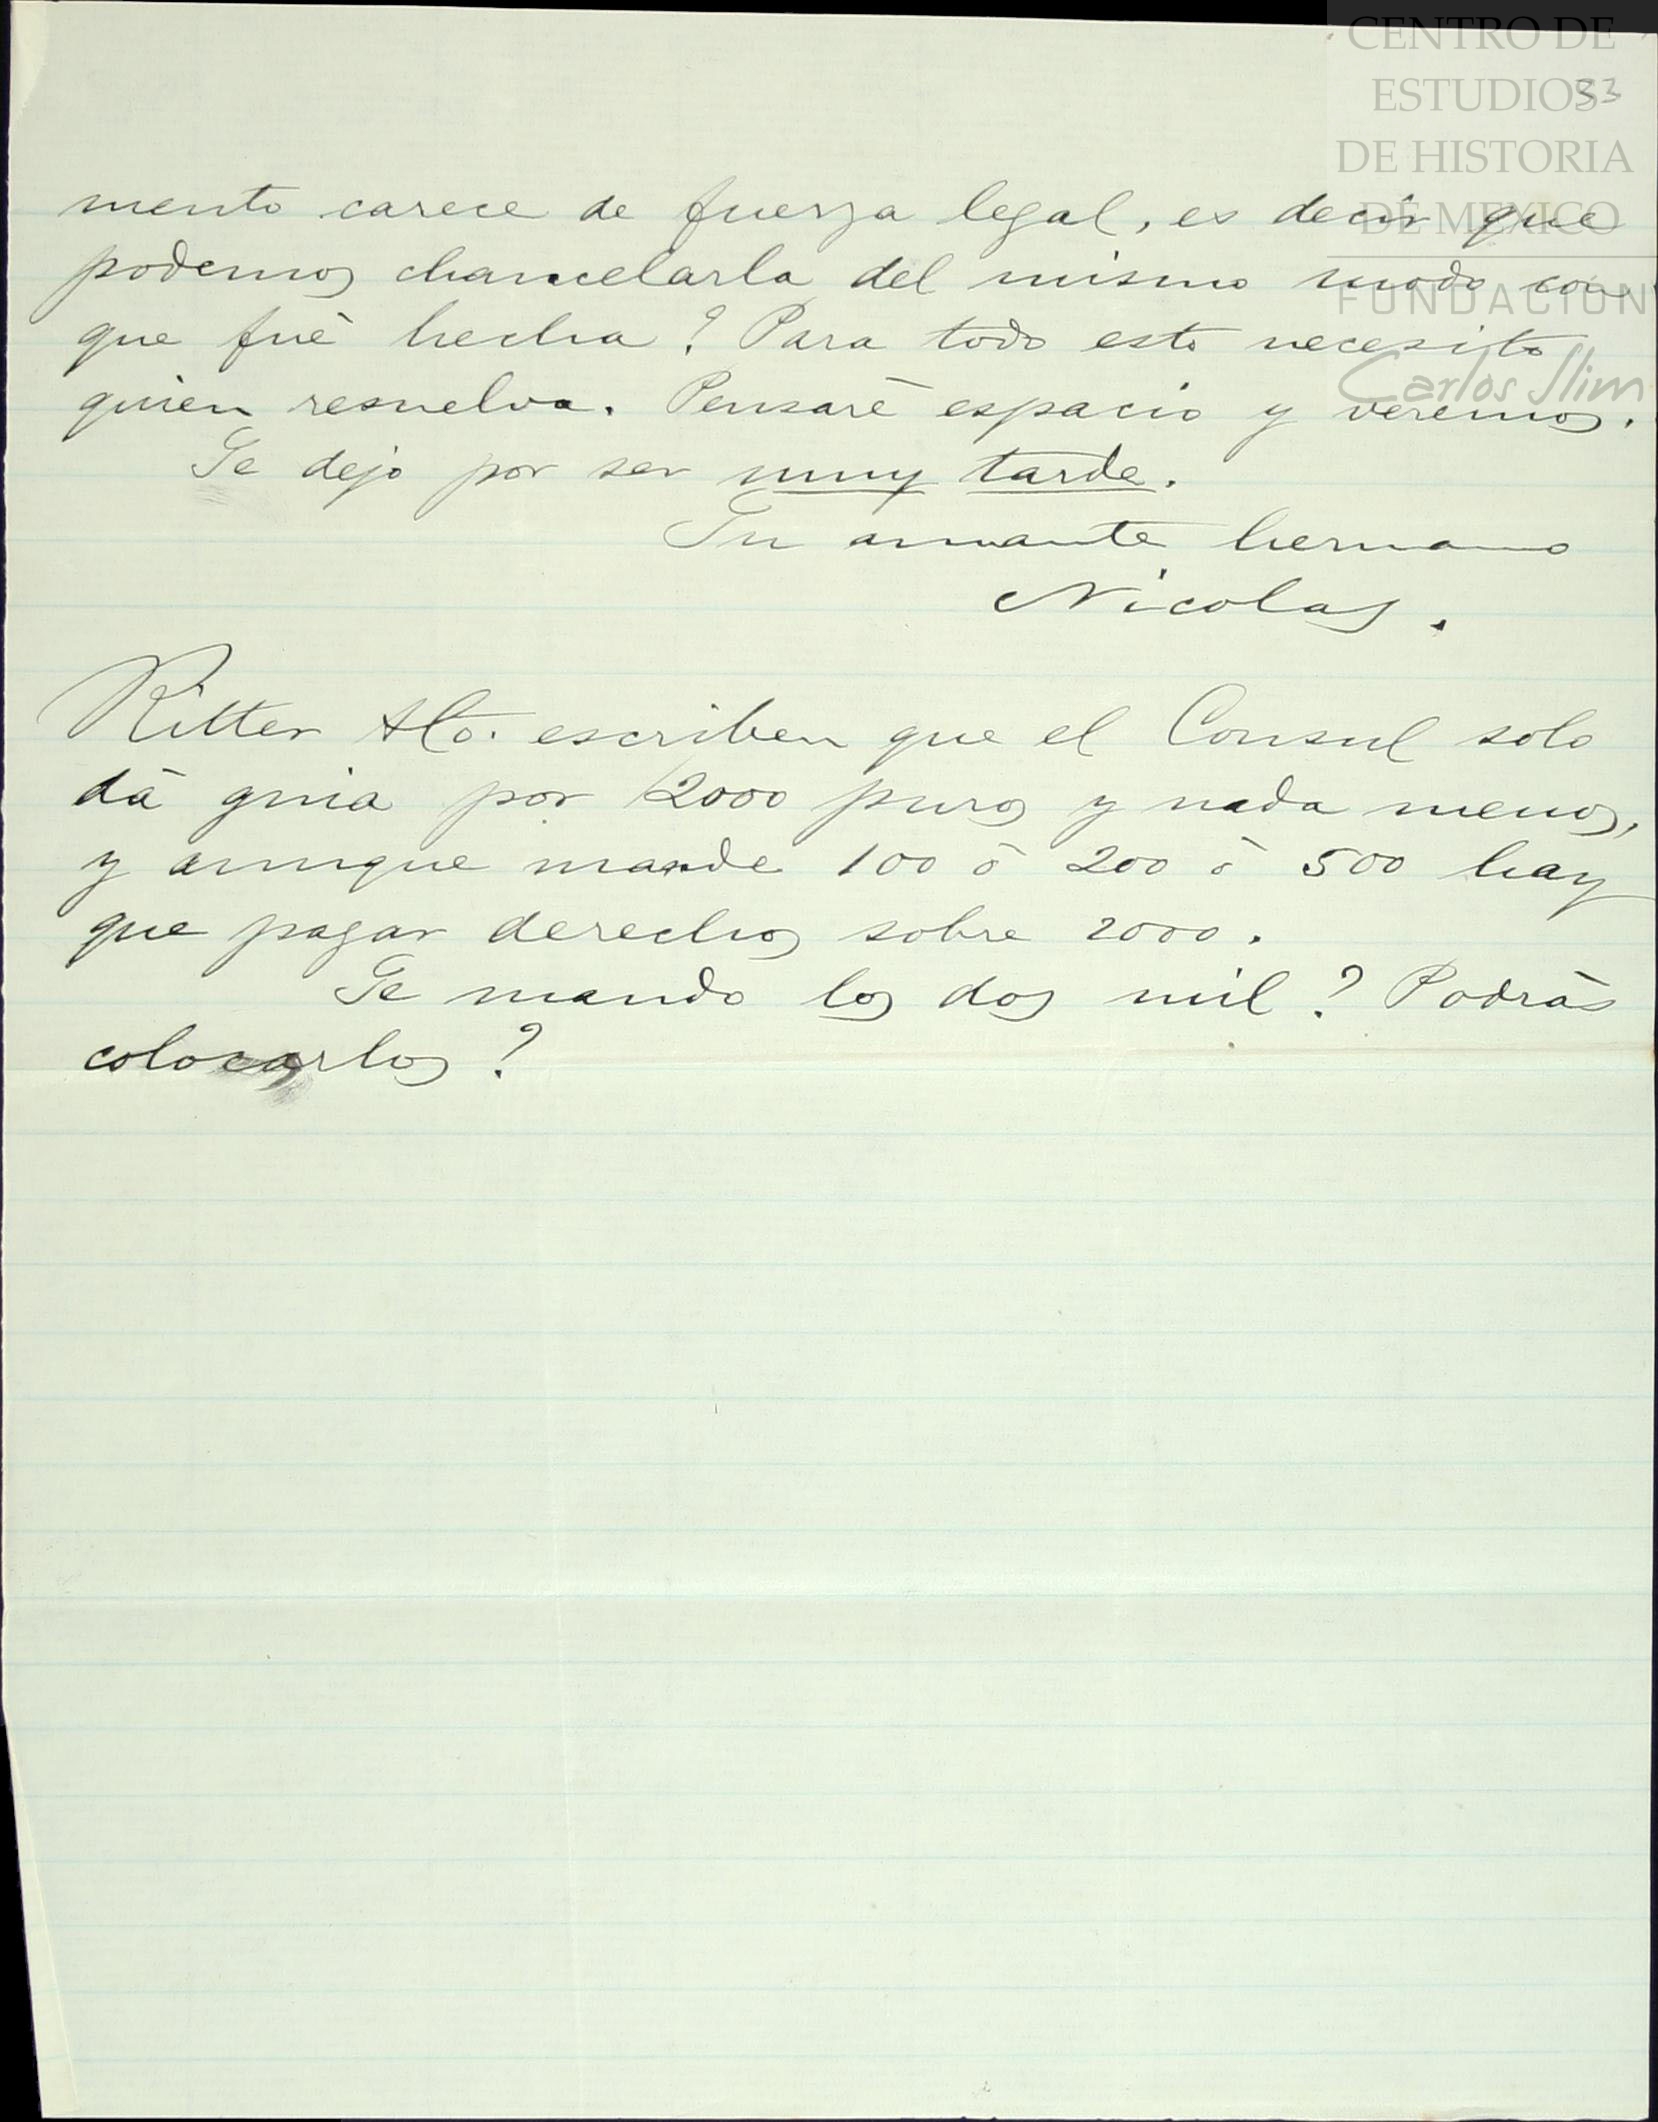 CENTRO DE
ESTUDIOS
33
DE HISTORIA
DE MEXICO
FUNDACION
Carlos Slim
mento carece de fuerza legal, es decir que
podemos chancelarla del mismo modo con
que fué hecha? Para todo esto necesito
quien resuelva. Pensaré espacio y veremos.
Te dejo por ser muy tarde.
Tu amante hermano
Nicolas.
Ritter &Co. escriben que el Consul solo
dá guia por 2000 puros y nada menos,
y aunque mande 100 ó 200 ó 500 hay
que pagar derechos sobre 2000.
Te mando los dos mil? Podrás
colocarlos?